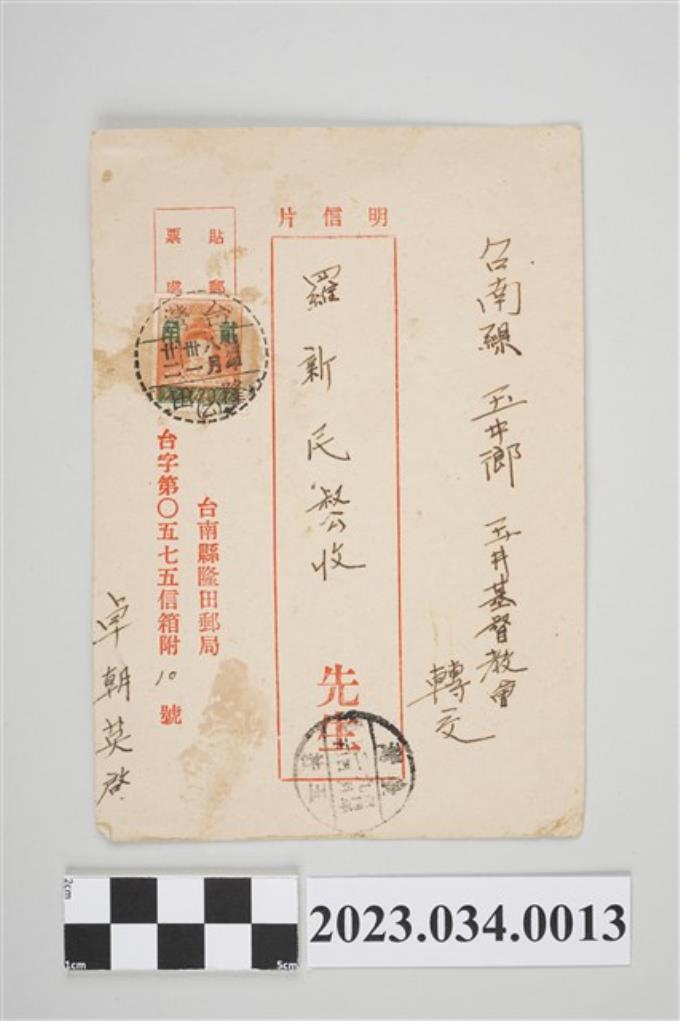 明信片
台南縣 玉井鄉 玉井基督教會
轉交
羅新民叔公收
先生
貼郵
票處
貳角
台南縣隆田郵局
台字第〇五七五信箱附10號
卓朝英啓
2cm
1cm
5cm
2023.034.0013